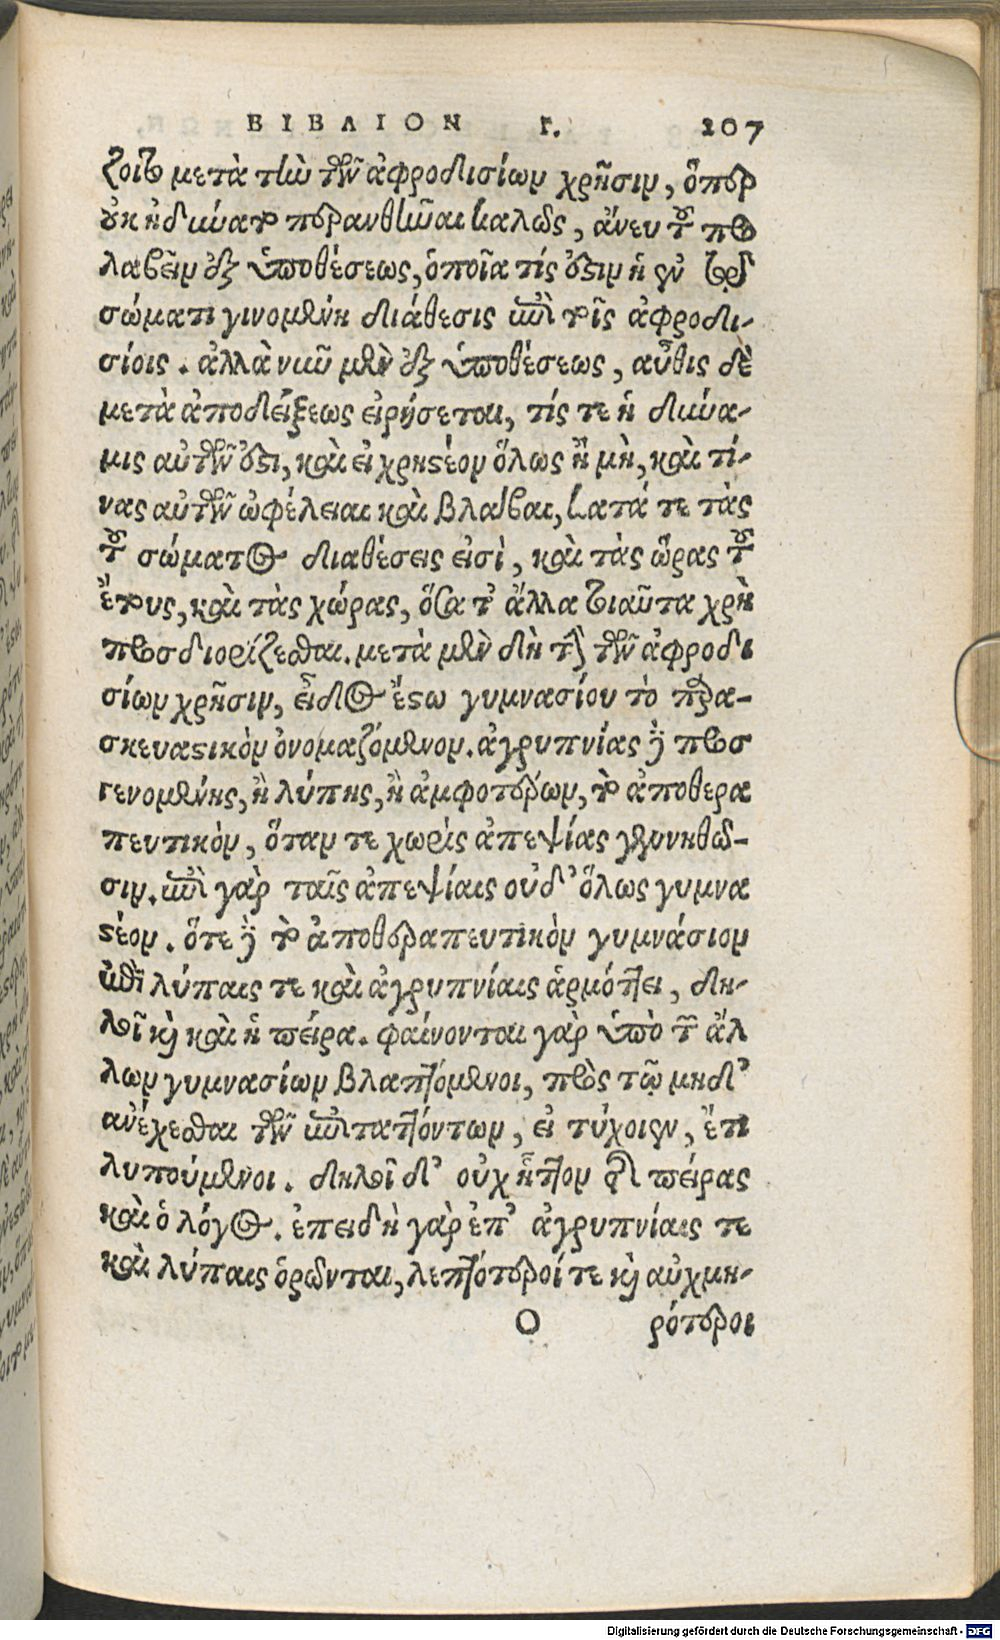 ΒΙΒΛΙΟΝ Γ. 207
ζοιτο μετὰ τὴν τῶν ἀφροδισίων χρῆσιν, ὅπερ
οὐκ ἠδύνατο περανθῆναι καλῶς, ἄνευ τοῦ προ
λαβεῖν ἐξ ὑποθέσεως, ὁποῖα τίς ἐστιν ἡ ἐν τῷ
σώματι γινομένη διάθεσις ἐπὶ τοῖς ἀφροδι-
σίοις. ἀλλὰ νῦν μὲν ἐξ ὑποθέσεως, αὖθις δὲ
μετὰ ἀποδείξεως εἰρήσεται, τίς τε ἡ δύνα-
μις αὐτῶν ἐστι, καὶ εἰ χρηστέον ὅλως ἢ μὴ, καὶ τί-
νας αὐτῶν ὠφέλειαι καὶ βλάβαι, κατά τε τὰς
τοῦ σώματος διαθέσεις εἰσὶ, καὶ τὰς ὥρας τοῦ
ἔτους, καὶ τὰς χώρας, ὅσα τ' ἄλλα τοιαῦτα χρὴ
προσδιορίζεσθαι. μετὰ μὲν δὴ τὴν τῶν ἀφροδι
σίων χρῆσιν, εἶδος ἔστω γυμνασίου τὸ παρα-
σκευαστικὸν ὀνομαζόμενον. ἀγρυπνίας δὲ προσ
γενομένης, ἢ λύπης, ἢ ἀμφοτέρων, τὸ ἀποθερα
πευτικὸν, ὅταν τε χωρὶς ἀπεψίας γεννηθῶ-
σιν. ἐπὶ γὰρ ταῖς ἀπεψίαις οὐδ' ὅλως γυμνα
στέον. ὅτι δὲ τὸ ἀποθεραπευτικὸν γυμνάσιον
ἐπὶ λύπαις τε καὶ ἀγρυπνίαις ἁρμόττει, δη-
λοῖ καὶ καὶ ἡ πεῖρα. φαίνονται γὰρ ὑπὸ τῶν ἄλ
λων γυμνασίων βλαπτόμενοι, πρὸς τῷ μηδ'
ἀνέχεσθαι τῶν ἐπιταττόντων, εἰ τύχοιεν, ἔτι
λυπούμενοι. δηλοῖ δ' οὐχ ἧττον τῆς πείρας
καὶ ὁ λόγος. ἐπειδὴ γὰρ ἐπ' ἀγρυπνίαις τε
καὶ λύπαις ὁρῶνται, λεπτότεροί τε καὶ αὐχμη-
Ο ρότεροι
Digitalisierung gefördert durch die Deutsche Forschungsgemeinschaft - DFG